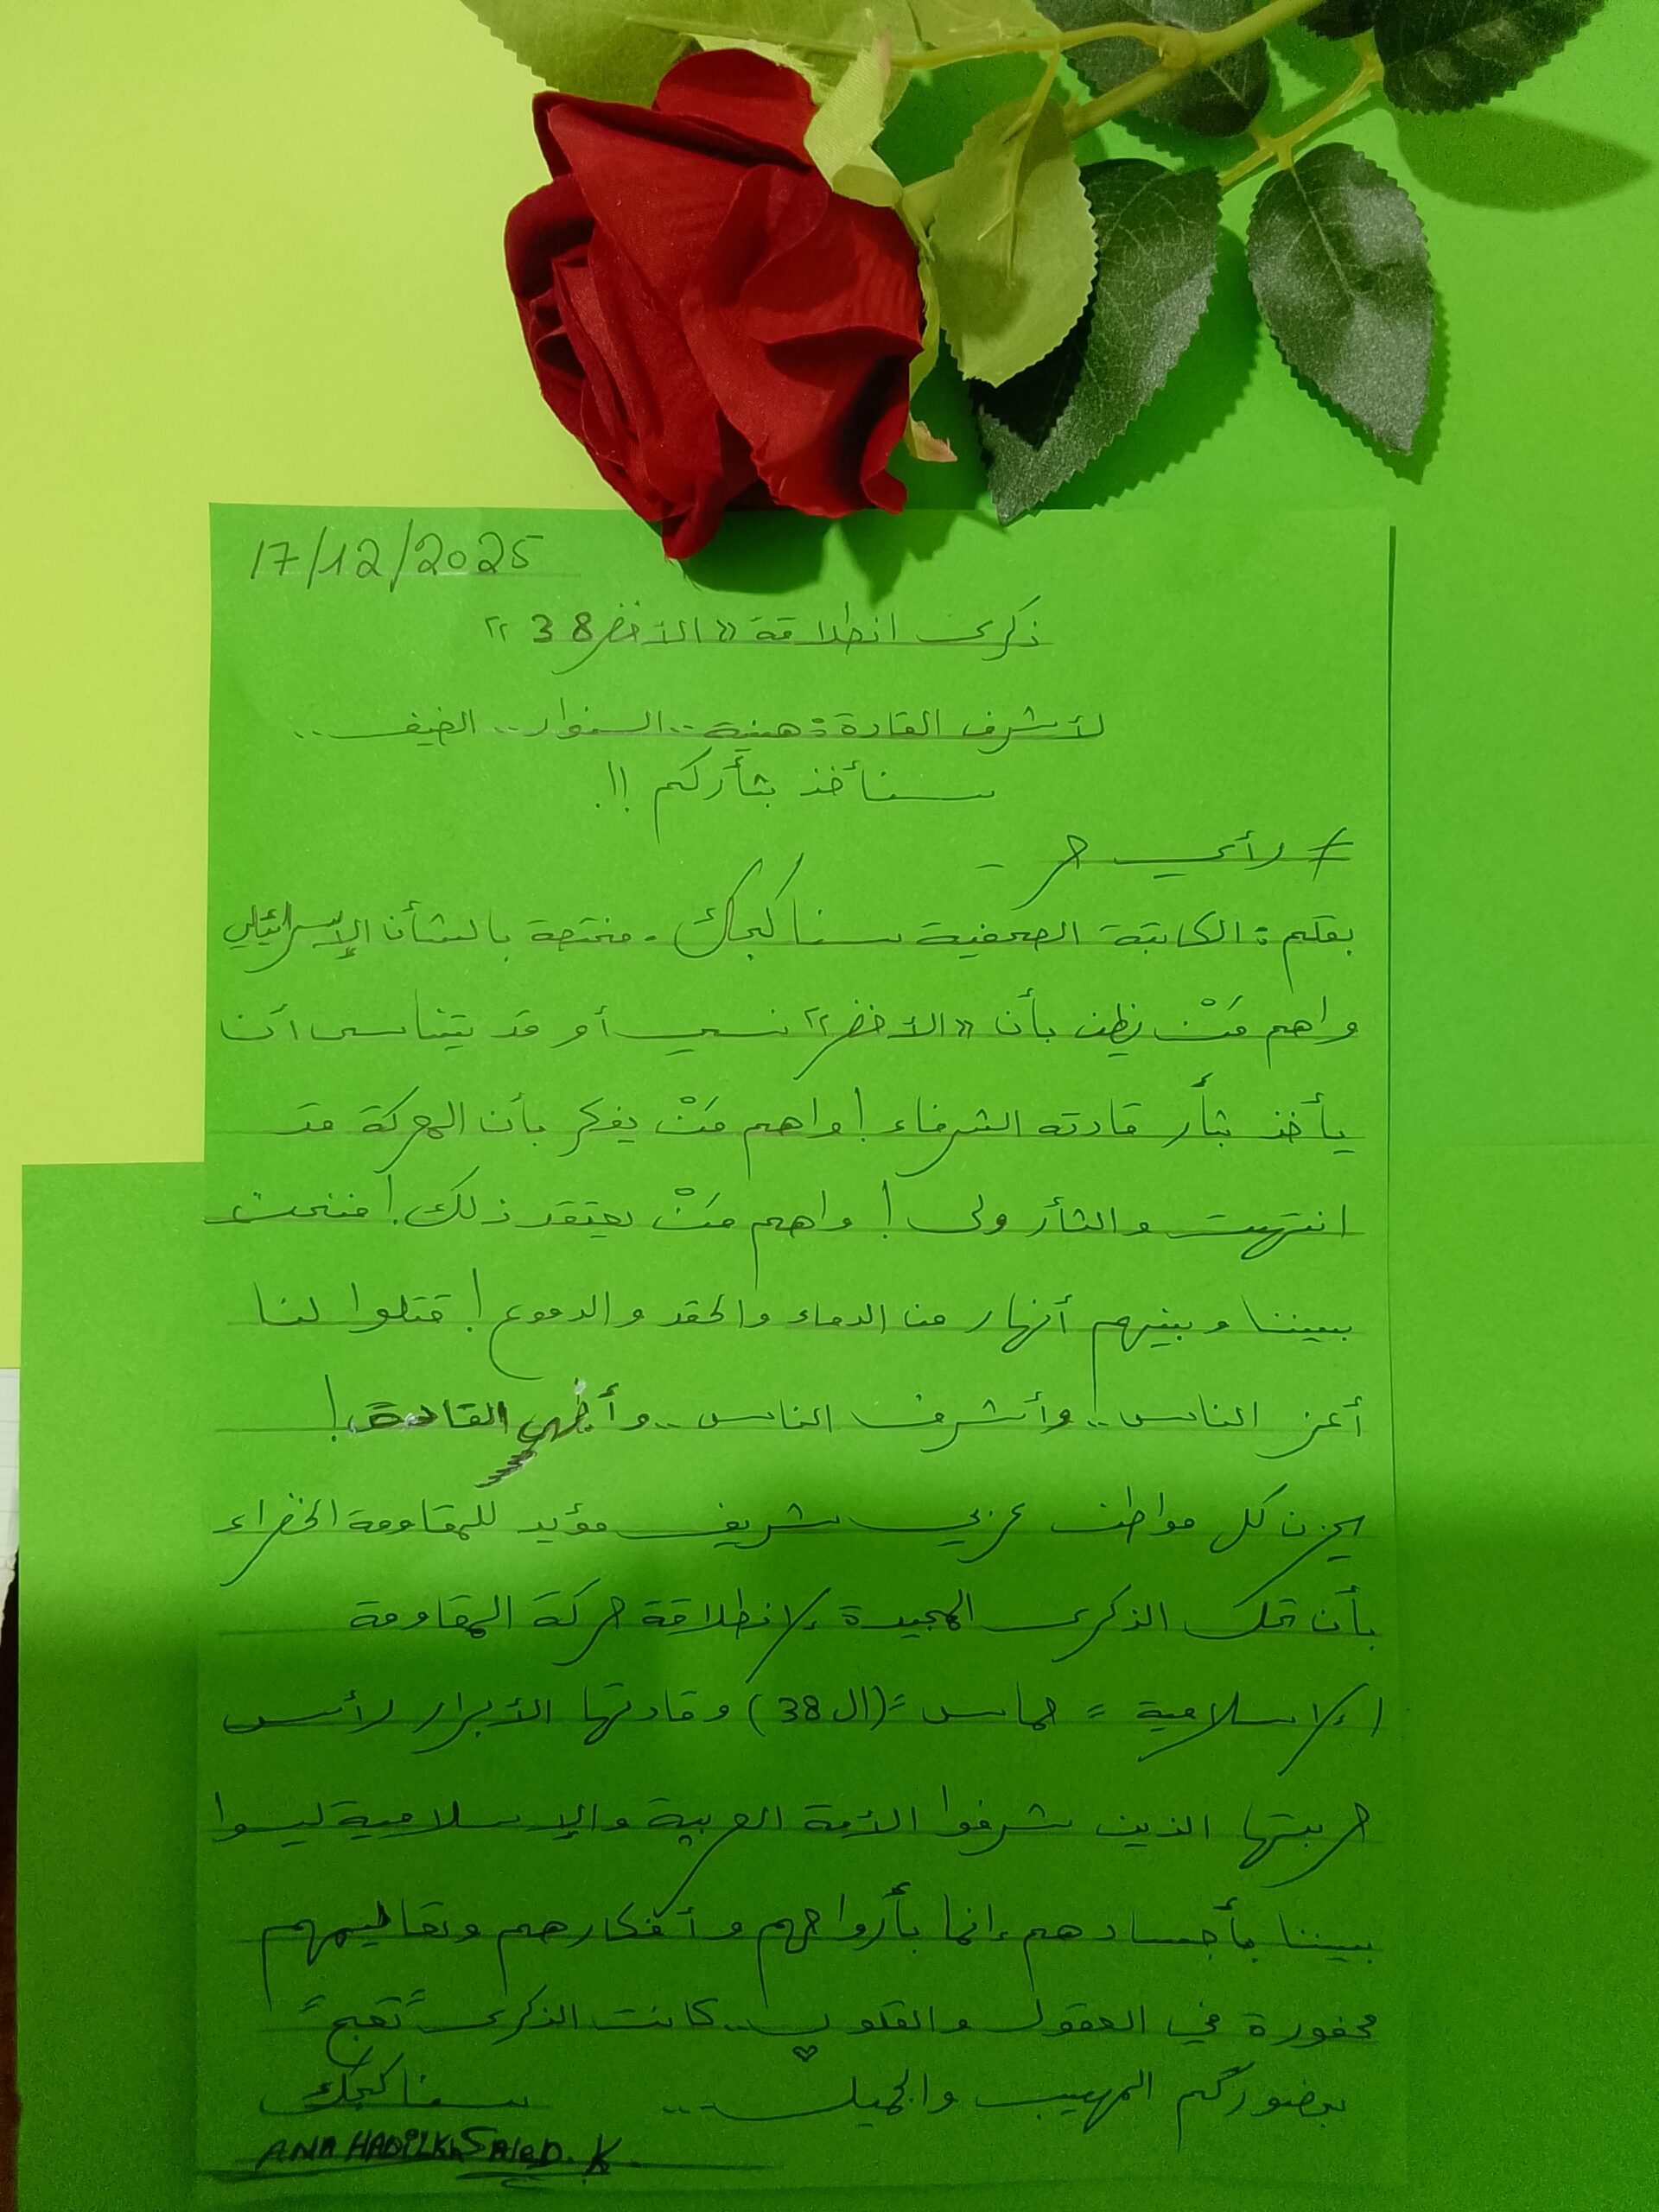 17/12/2025
ذكرى انطلاقة «الأخضر 38»
لأشرف القادة: هنية.. السنوار.. الضيف..
سنأخذ بثأركم !!
# رأي حر -
بقلم: الكاتبة الصحفية سنا كجك - مختصة بالشأن الإسرائيلي
واهم مَنْ يظن بأن «الأخضر» نسي أو قد يتناسى أن
يأخذ بثأر قادته الشرفاء! واهم مَنْ يفكر بأن المعركة قد
انتهت والثأر ولى! واهم مَنْ يعتقد ذلك! فنحن
بيننا وبينهم أنهار من الدماء والحقد والدموع! قتلوا لنا
أعز الناس.. وأشرف الناس.. وأطهر القادة!
يحزن كل مواطن عربي شريف مؤيد للمقاومة الخضراء
بأن تلك الذكرى المجيدة لإنطلاقة حركة المقاومة
الإسلامية = حماس = (ال 38) وقادتها الأبرار رأس
حربتها الذين شرفوا الأمة العربية والإسلامية ليسوا
بيننا بأجسادهم إنما بأرواحهم وأفكارهم وتعاليمهم
محفورة في العقول والقلوب.. كانت الذكرى
بحضوركم المهيب والجميل.. سنا كجك